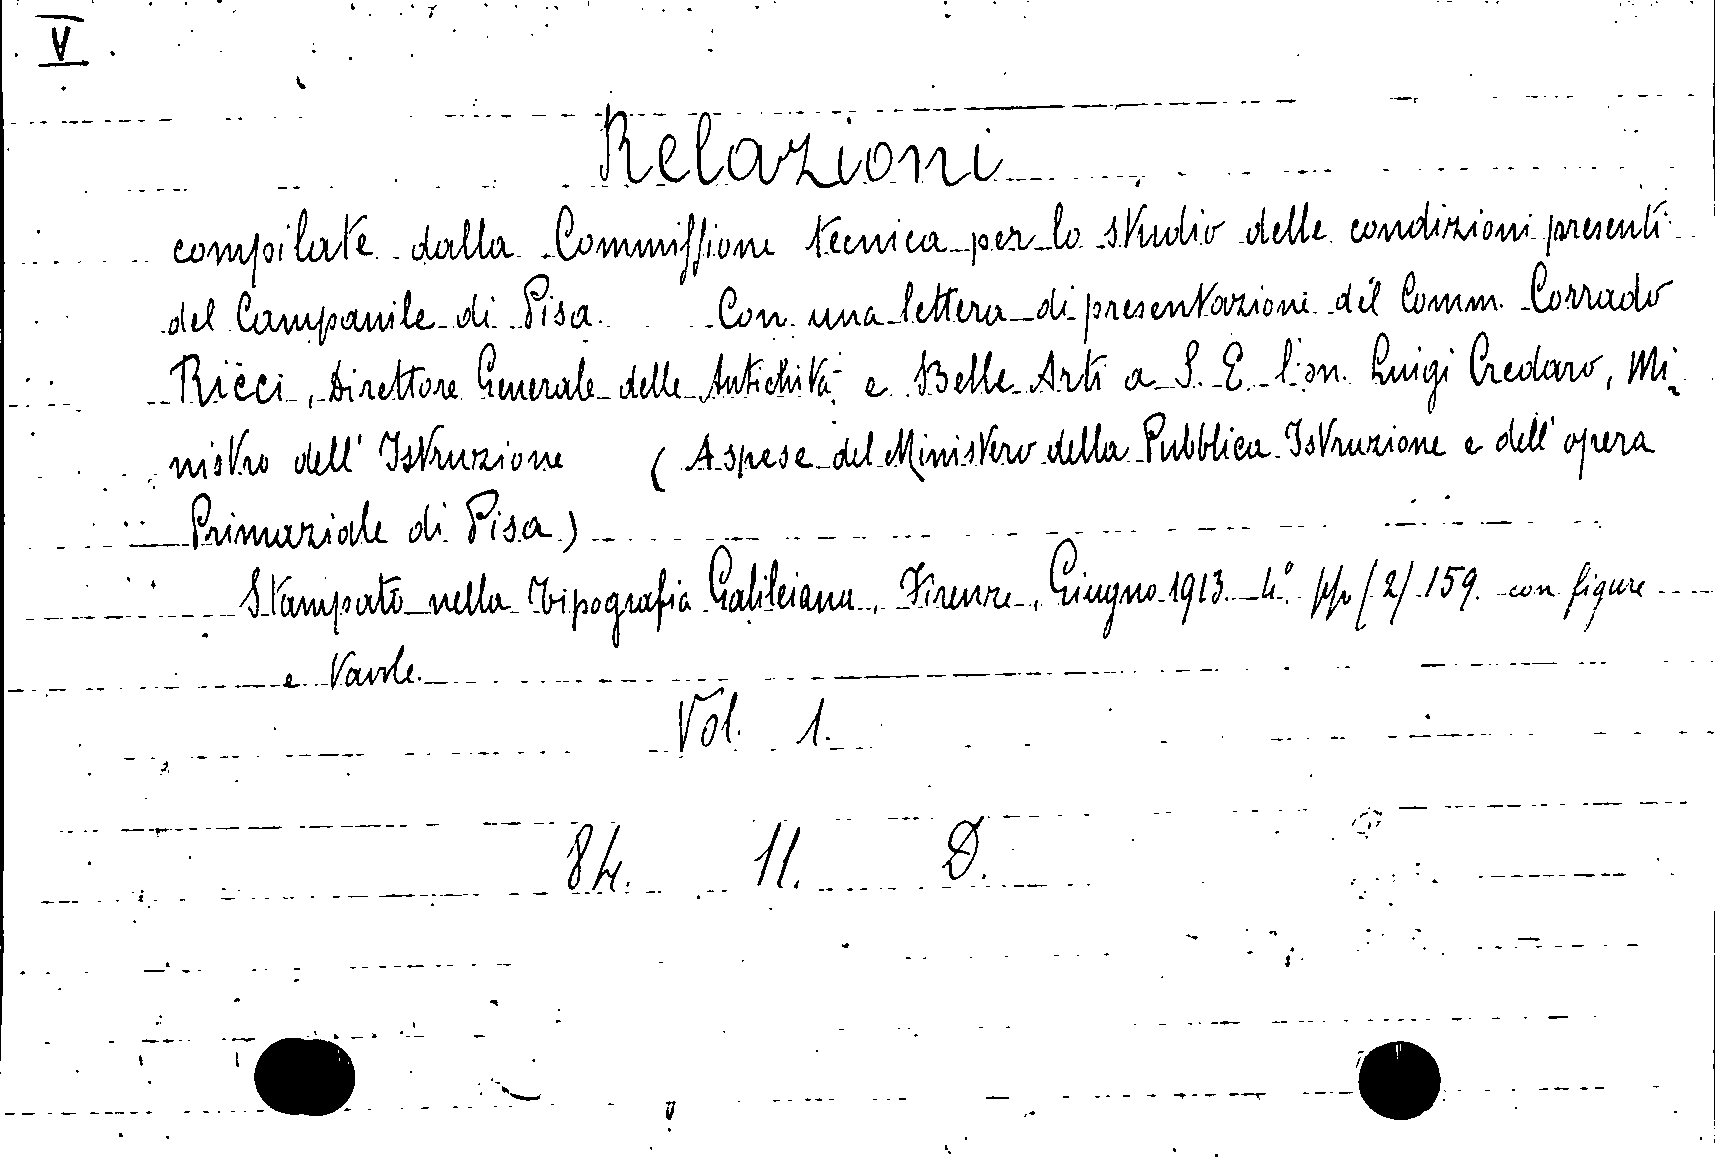 V
Relazioni
compilate dalla Commissione tecnica per lo studio delle condizioni presenti
del Campanile di Pisa. Con una lettera di presentazione del Comm. Corrado
Ricci, Direttore Generale delle Antichità e Belle Arti a S. E. l'on. Luigi Credaro, Mi-
nistro dell' Istruzione (A spese del Ministero della Pubblica Istruzione e dell' opera
Primaziale di Pisa)
Stampato nella Tipografia Galileiana, Firenze, Giugno 1913 4° pp (2) 159. con figure
e tavole.
Vol. 1.
84. 11. D.